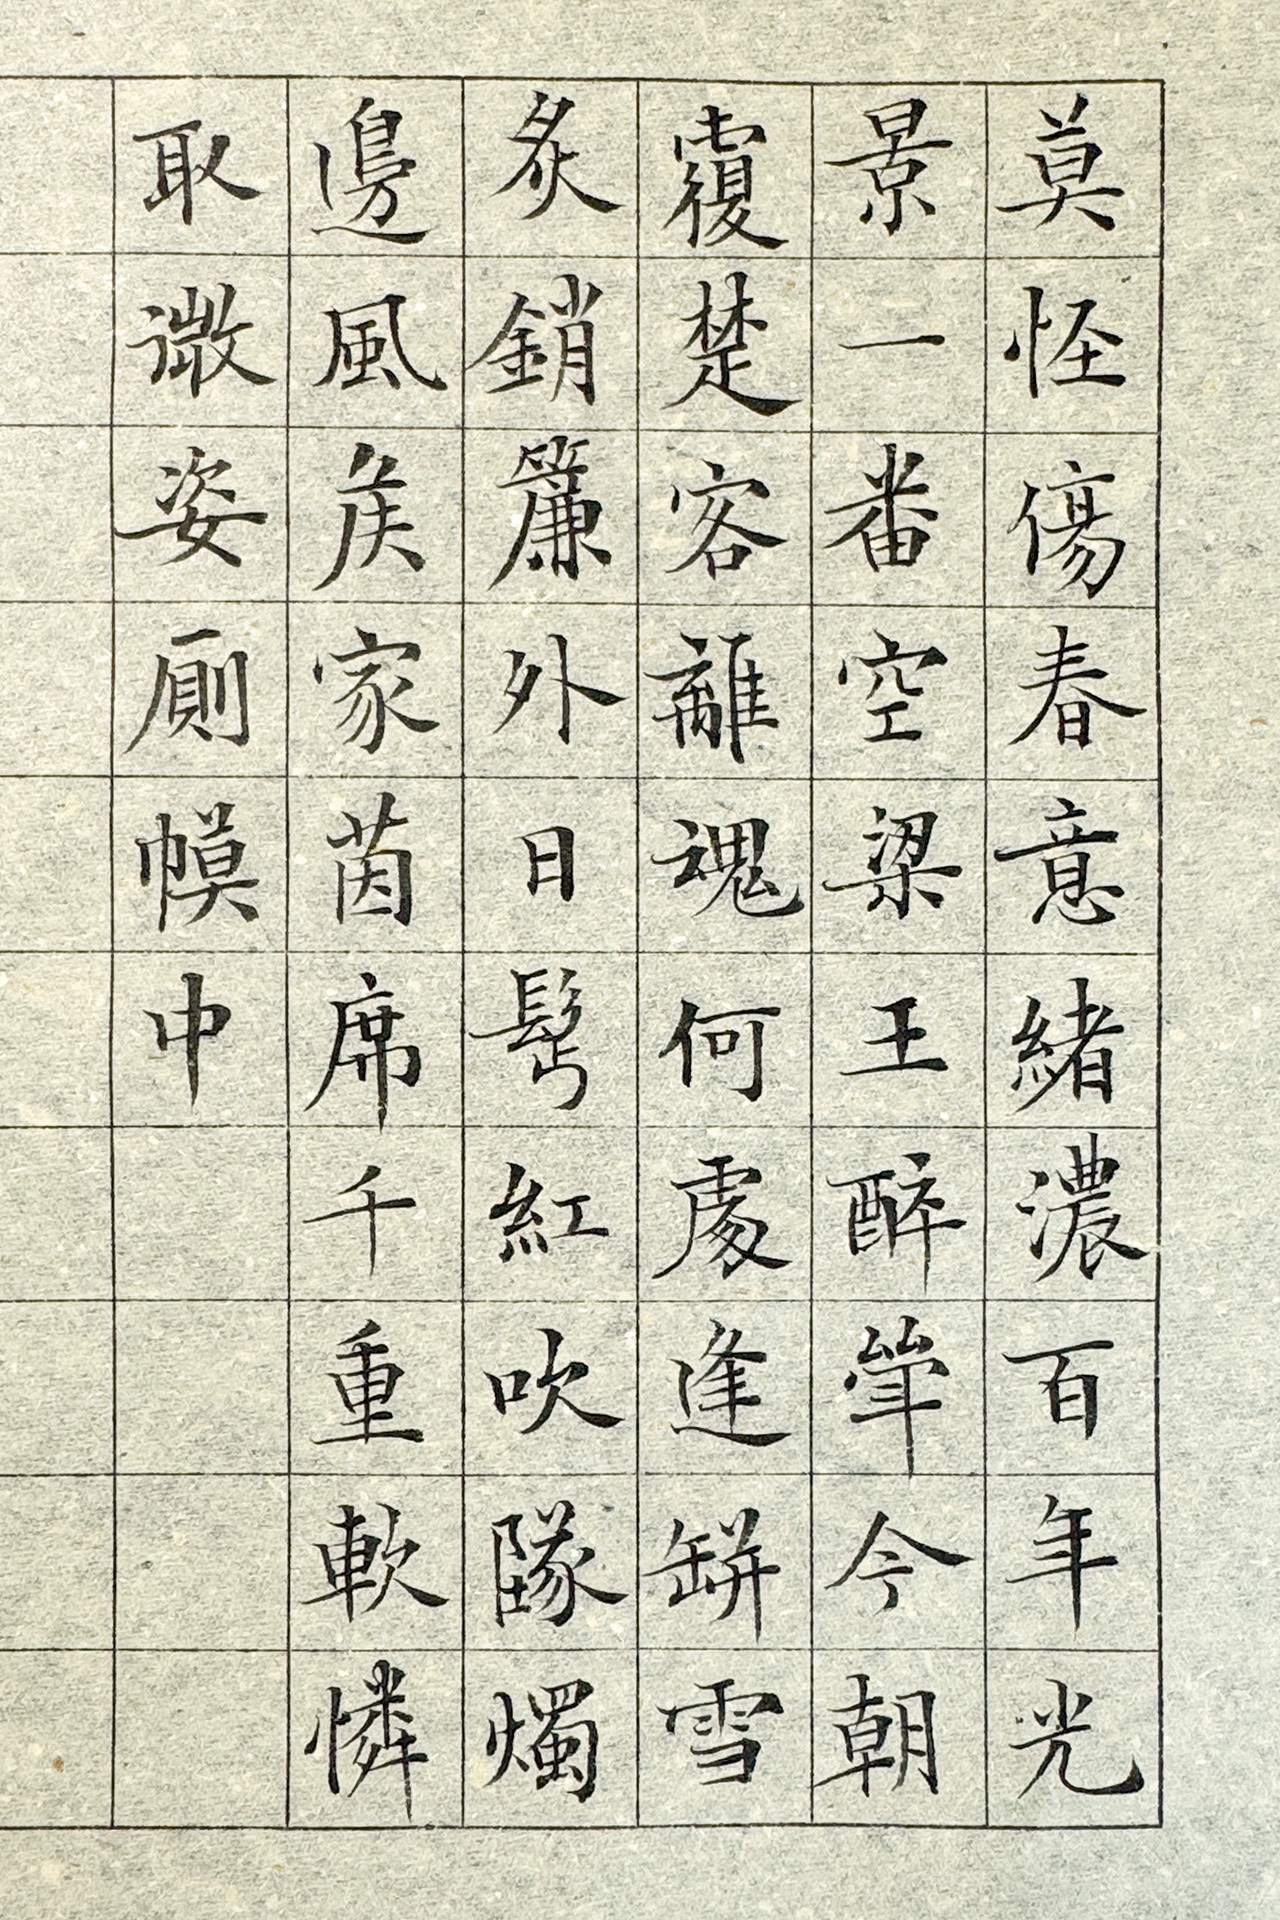 莫怪傷春意緒濃百年光
景一番空梁王醉斝今朝
覆楚客離魂何處逢缾雪
炙銷簾外日髩紅吹隊燭
邊風矦家茵席千重軟憐
取微姿廁幙中